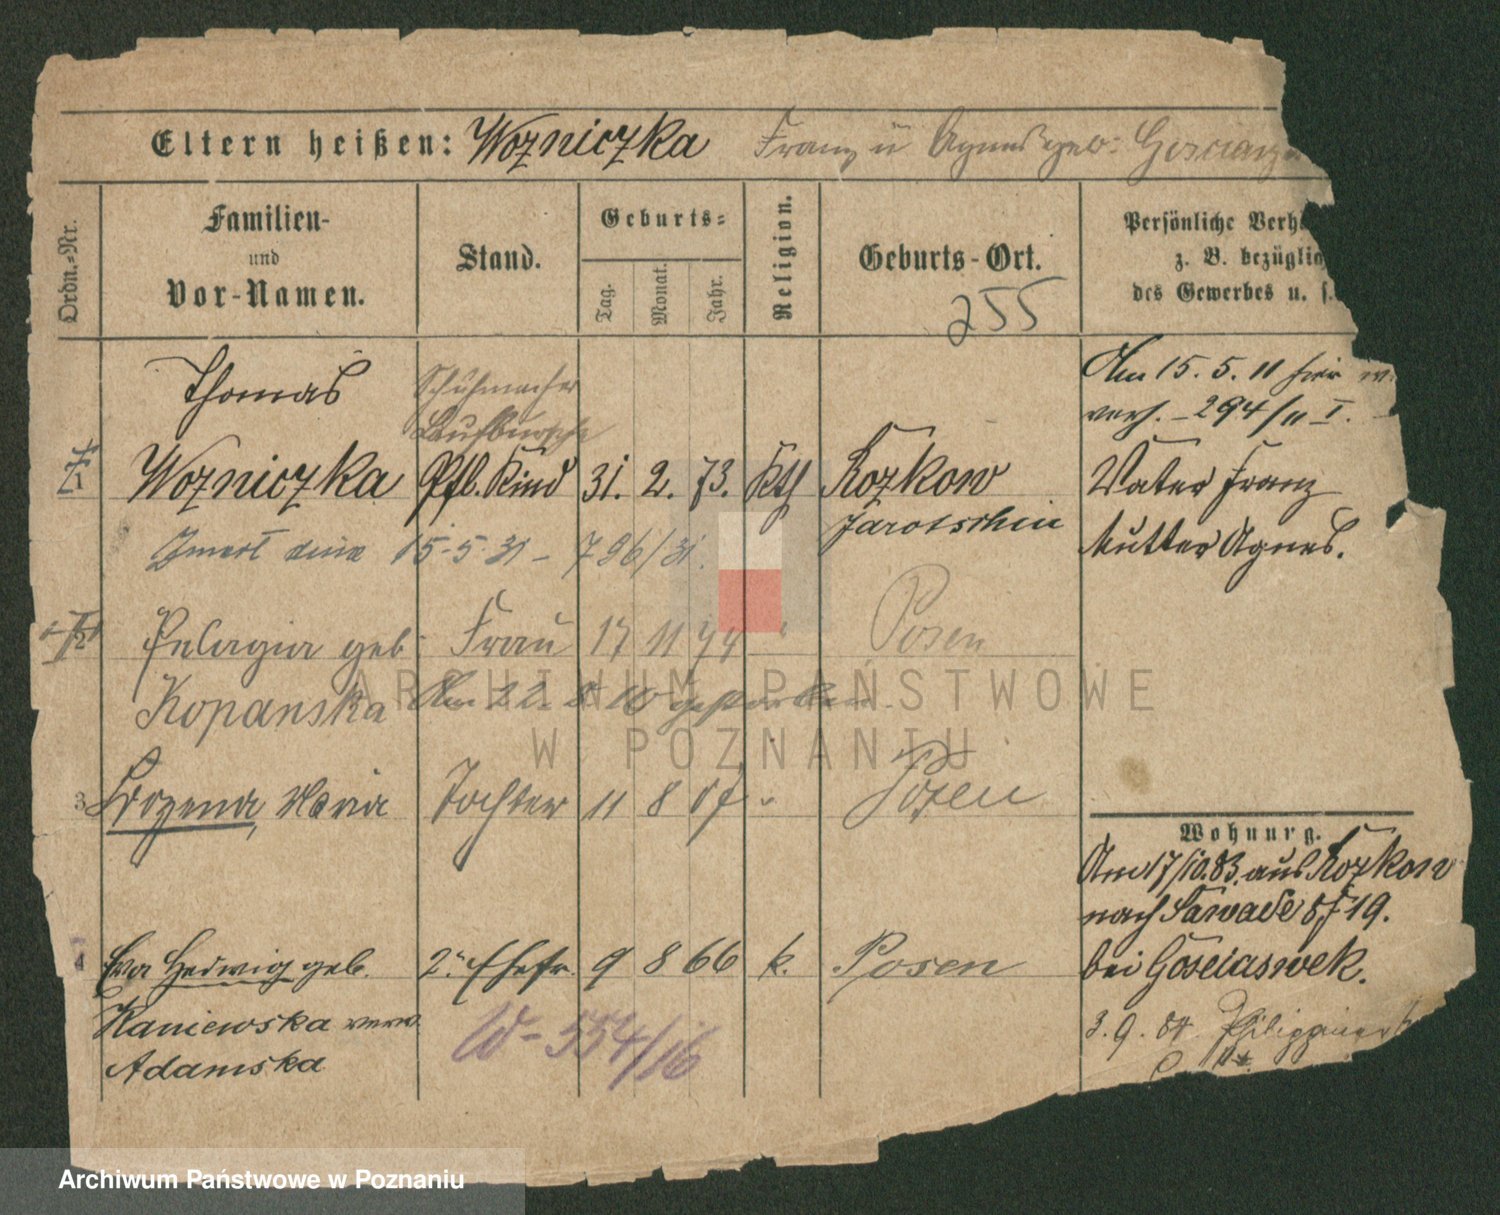 Eltern heißen: Wozniczka Franz u Agnes geb:
Ordn.-Nr.
Familien-
und
Vor-Namen.
Stand.
Geburts-
Tag.
Monat.
Jahr.
Religion.
Geburts-Ort.
255
Persönliche
z. B.
des Gewerbes u.
Thomas
Schuhmacher
Laufbursche
Am 15. 5. 11 hier
verh. - 294/11 I.
1 Wozniczka Pfl. Kind 31. 2. 73. Kth Kozkow
Jarotschin
Vater Franz
Mutter Agnes.
15-5-31 - 796/31.
2 Pelagia geb. Frau 17 11 74 " Posen
Kopanska Am 22. 8 10 gestorben.
3 Bozena, Maria Tochter 11 8 07 " Posen
Wohnung.
Am 17/10.83. aus Kozkow
nach Sawade 8F 19.
bei Gosciaswek.
4 Eva Hedwig geb. 2te Ehefr. 9 8 66 k. Posen
Kaniewska verw.
Adamska
W - 554/16
3. 9. 84
ARCHIWUM PAŃSTWOWE
W POZNANIU
Archiwum Państwowe w Poznaniu